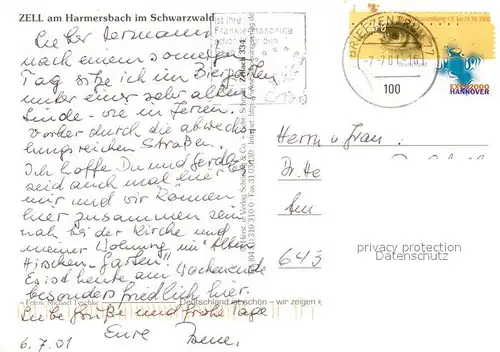 ZELL am Harmersbach im Schwarzwald
Lieber Hermann
nach einem sonnigen
Tag sitze ich im Biergarten
unter einer sehr alten
Linde - wie in Ferien.
Vorher durch die abwechs
lungsreichen Straßen.
Ich hoffe Du und
seid auch mal hier bei
mir und wir können
hier zusammen sein
nah bei der Kirche und
meiner Wohnung im "Alten
Hirschen-Garten".
Es ist heute am Wochenende
besonders friedlich hier.
Liebe Grüße und frohe Tage
Eure
6.7.01
Fotos: Michael
Deutschland ist schön – wir zeigen e
Ist Ihre
BRIEFZENTRUM 77
100
EXPO2000
HANNOVER
Herrn u. Frau
Dr. He
Am
643
privacy protection
Datenschutz